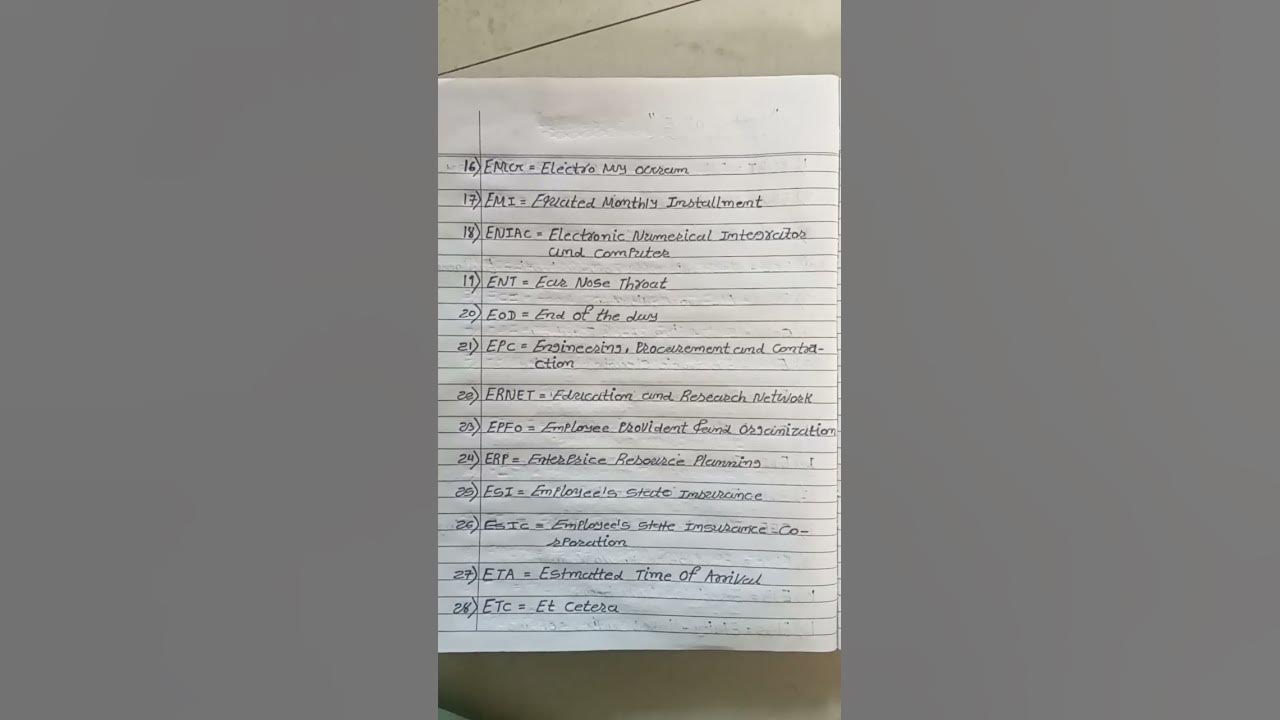 16) EMG = Electro My ogram
17) EMI = Equated Monthly Installment
18) ENIAC = Electronic Numerical Integrator
and Computer
19) ENT = Ear Nose Throat
20) EOD = End of the day
21) EPC = Engineering, Procurement and Contra-
ction
22) ERNET = Education and Research Network
23) EPFO = Employee Provident fund Organization
24) ERP = Enterprice Resource Planning
25) ESI = Employee's State Insurance
26) ESIC = Employee's State Insurance Co-
rporation
27) ETA = Estmatted Time Of Arrival
28) ETC = Et Cetera